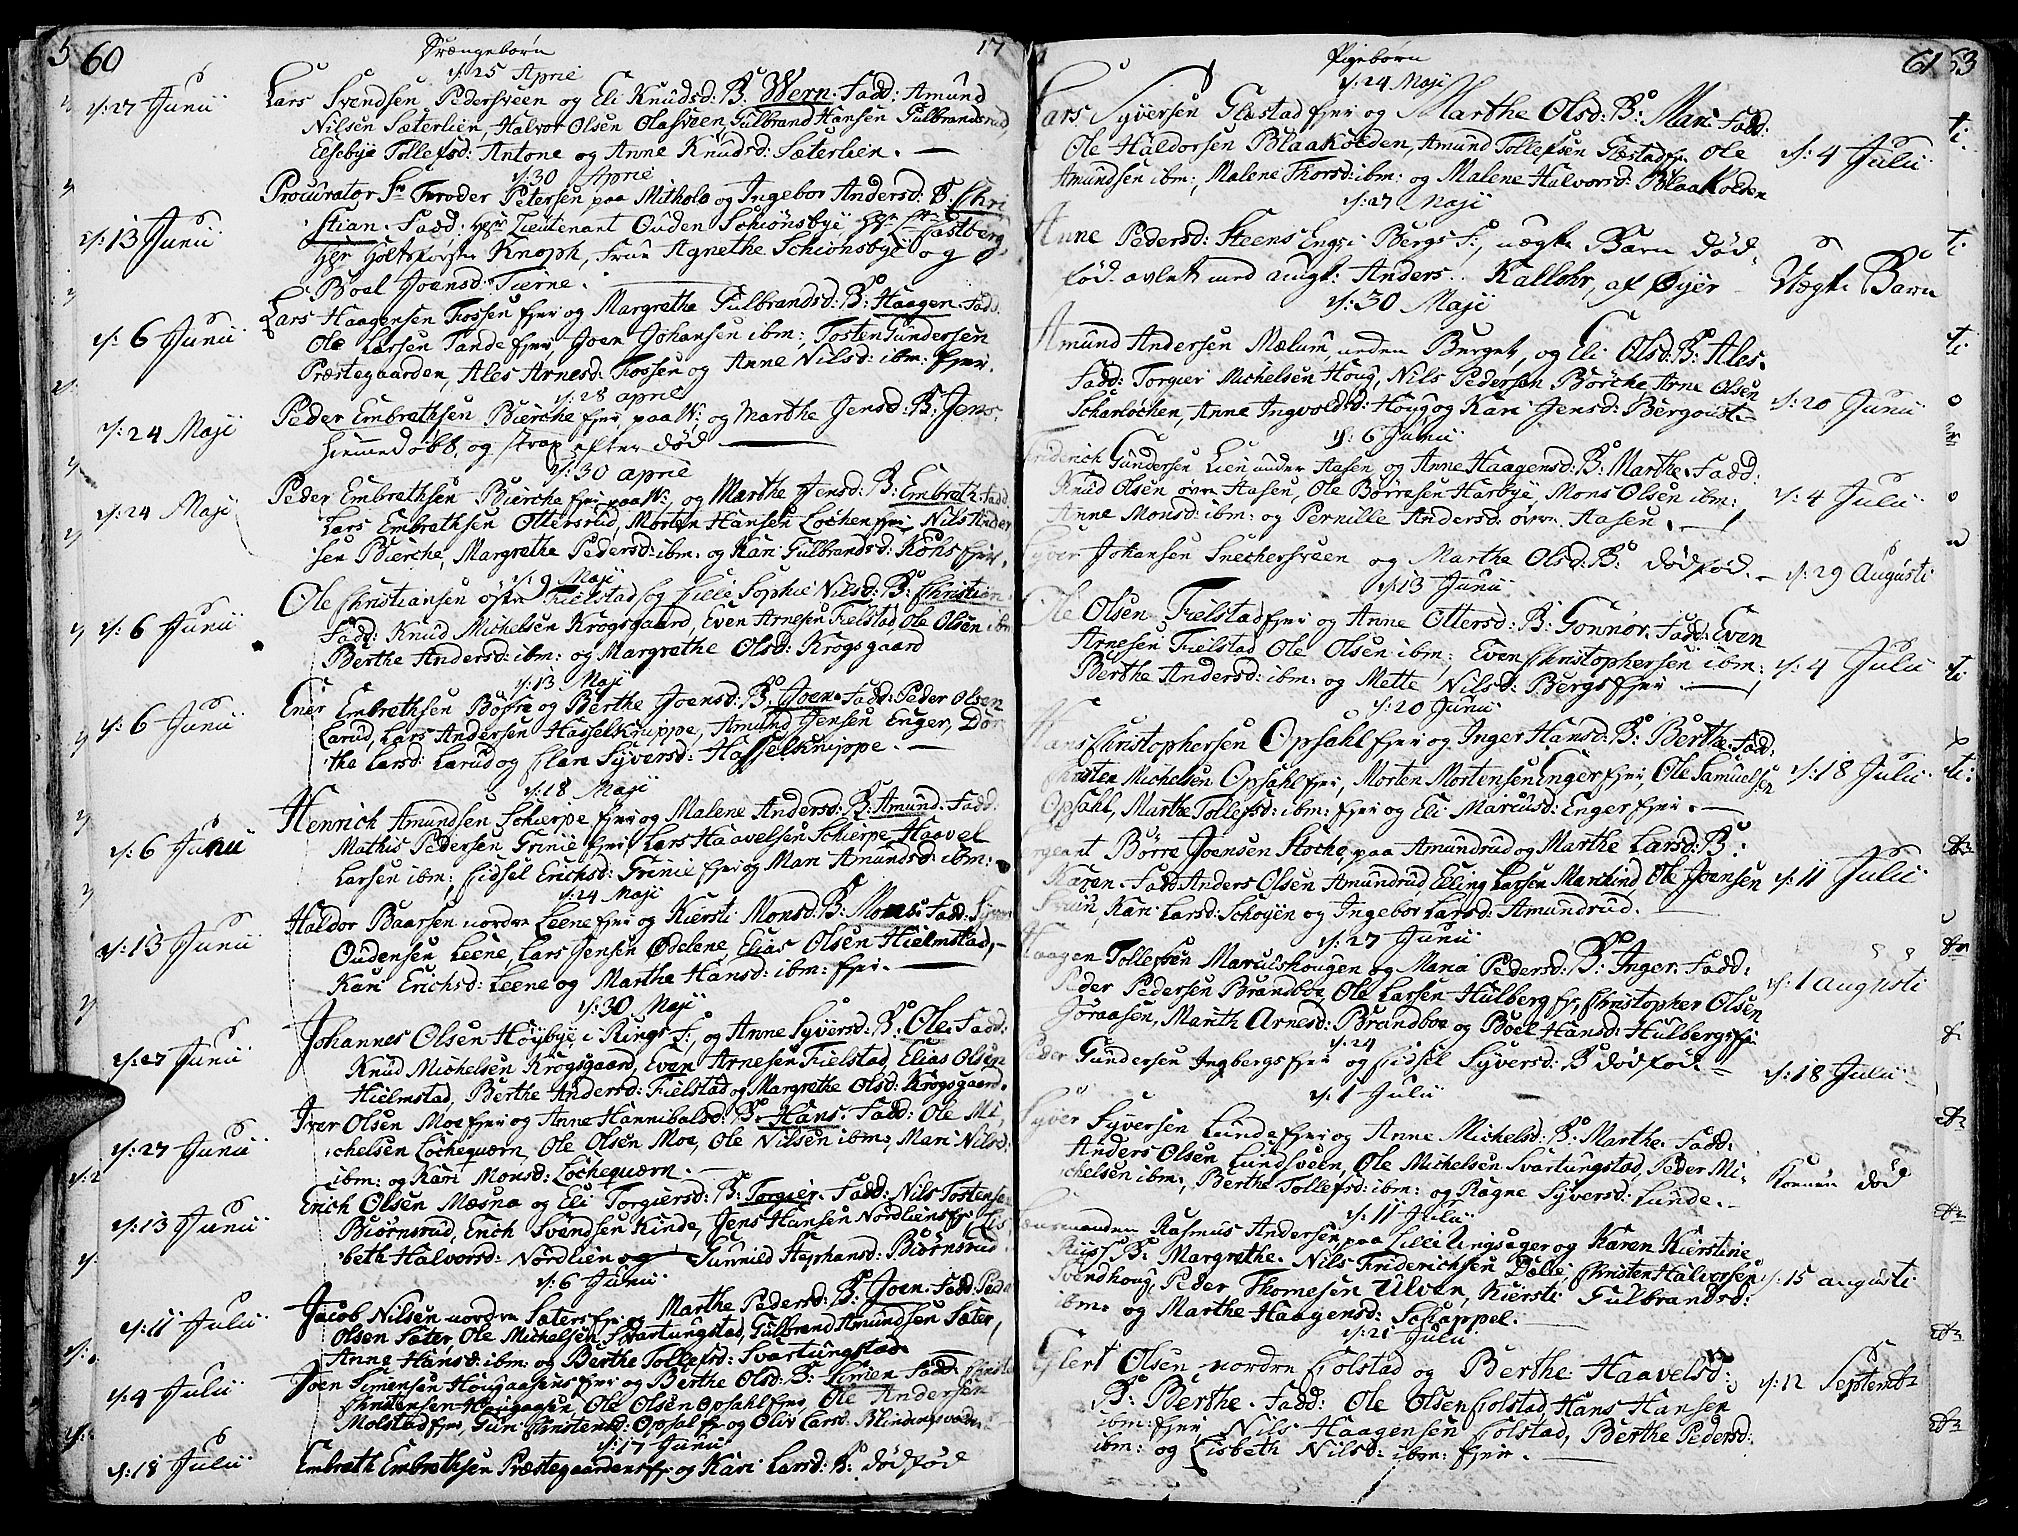 60
Drængebørn
d: 25 Aprie
d: 27 Junii
Lars Svendsen Pedersveen og Eli Knudsd: B: Wern. Fadd: Amund
Nilsen Sæterlien, Halvor Olsen Olasveen, Gulbrand Hansen Gulbrandsrud
Elsebye Tollefsd: Antone og Anne Knudsd: Sæterlien.
d: 30 Aprie
d: 13 Junii
Procurator Sr. Petersen paa Mitholo og Ingebor Andersd: B: Chri
stian. Fadd: Lieutenant Ouden Schiønsbye,
Knoph, Frue Agnethe Schiønsbye og
Boel Joensd: Tierne.
d: 6 Junii
Lars Haagensen Fossen Ejer og Margrethe Gulbrandsd: B: Haagen. Fadd.
Ole Larsen Tande Ejer, Joen Johansen ibm:, Tosten Gundersen
Præstegaarden, Ales Arnesd: Fossen og Anne Nilsd: ibm: Ejer.
d: 28 aprie
d: 24 Maji
Peder Embrethsen Bierche Ejer paa W: og Marthe Jensd: B: Jens.
Hiemmedøbt, og strax efter død
d: 30 aprie
d: 24 Maji
Peder Embrethsen Bierche Ejer paa W: og Marthe Jensd: B: Embreth. Fadd
Lars Embrethsen Ottersrud, Morten Hansen Lochen Ejer, Nils Ander
sen Bierche, Margrethe Pedersd: ibm: og Kari Gulbrandsd: Røhs Ejer.
d: 9 Maji
d: 6 Junii
Ole Christiansen østre Fielstad og Lille Sophie Nilsd: B: Christian
Fadd: Knud Michelsen Krogsgaard, Even Arnesen Fielstad, Ole Olsen ibm
Berthe Andersd: ibm: og Margrethe Olsd: Krogsgaard
d: 13 Maji
d: 6 Junii
Ener Embrethsen Bøfre og Berthe Joensd: B: Joen. Fadd: Peder Olsen
Larud, Lars Andersen Hasselknippe, Amund Jensen Enger, Dor
the Larsd: Larud og Eları Syversd: Hasselknippe.
d: 18 Maji
d: 6 Junii
Henrich Amundsen Schierpe Ejer og Malene Andersd: B: Amund. Fadd:
Mathis Pedersen Grinie Ejer, Lars Haavelsen Schierpe, Haavel
Larsen ibm: Sidsel Erichsd: Grinie Ejer og Mari Amundsd: ibm:
d: 24 Maji
d: 13 Junii
Haldor Baarsen nordre Leene Ejer og Kiersti Monsd: B: Mons. Fadd:
Oudensen Leene, Lars Jensen Ødelene, Elias Olsen Hielmstad,
Kari Erichsd: Leene og Marthe Hansd: ibm: Ejer.
d: 30 Maji
d: 27 Junii
Johannes Olsen Høybye i Rings F: og Anne Syversd: B: Ole. Fadd:
Knud Michelsen Krogsgaard, Even Arnesen Fielstad, Elias Olsen
Hielmstad, Berthe Andersd: Fielstad og Margrethe Olsd: Krogsgaard.
d: 27 Junii
Iver Olsen Moe Ejer og Anne Hannibalsd: B: Hans. Fadd: Ole Mi,
chelsen Løchequærn, Ole Olsen Moe, Ole Nilsen ibm:, Mari Nilsd:
ibm: og Kari Monsd: Løchequærn.
d: 13 Junii
Erich Olsen Mæsna og Eli Torgiersd: B: Torgier. Fadd: Nils Tostensen
Biørnsrud, Erich Svendsen Kinde, Jens Hansen Nordliens E: Elis
beth Halvorsd: Nordlien og Gunnild Stephansd: Biørnsrud
d: 6 Junii
d: 11 Julii
Jacob Nilsen nordre Sæters Ejer og Marthe Pedersd: B: Joen. Fadd: Peder
Olsen Sæter, Ole Michelsen Svartungstad, Gulbrand Amundsen Sæter,
Anne Hansd: ibm: og Berthe Tollefsd: Svartungstad.
d: 4 Julii
Joen Simensen Hougaasens Ejer og Berthe Olsd: B: Simen. Fadd:
Christensen Hougaasen, Ole Olsen Opsahl Ejer, Ole Andersen
Molstad Ejer, Guri Christensd: Opsal E: og Oliv Larsd: Blindingsvolden
d: 17 Junii
d: 18 Julii
Embreth Embrethsen Præstegaardens Ejer og Kari Larsd: B: dødfød
61
Pigebørn
d: 24 Maji
Lars Syversen Glæstad Ejer og Marthe Olsd: B: Mari. Fadd:
Ole Haldorsen Blaakolden, Amund Tollefsen Glæstad E: Ole
Amundsen ibm:, Malene Thorsd: ibm: og Malene Halvorsd: Blaakolden
d: 4 Julii
d: 27 Maji
Anne Pedersd: Steens Engs i Bergs F:, uægte Barn død,
fød. avlet med angl: Anders Kallohr, af Øyer
Uægte Barn
d: 30 Maji
Amund Andersen Mælum, neden Berget, og Eli Olsd: B: Ales.
Fadd: Torgier Michelsen Houg, Nils Pedersen Børche, Arne Olsen
Scharløchen, Anne Ingvoldsd: Houg og Kari Jensd: Bergqvist.
d: 20 Junii
d: 6 Junii
Friderich Gundersen Lien under Aasen, og Anne Haagensd: B: Marthe. Fadd:
Knud Olsen øvre Aasen, Ole Børresen Harbye, Mons Olsen ibm:
Anne Monsd: ibm: og Pernille Andersd: øvre Aasen.
d: 4 Julii
Syver Johansen Snechersveen og Marthe Olsd: B: dødfød.
d: 29 Augusti
d: 13 Junii
Ole Olsen Fielstad Ejer og Anne Ottersd: B: Gonnor. Fadd: Even
Arnesen Fielstad, Ole Olsen ibm:, Even Christophersen ibm:
Berthe Andersd: ibm: og Mette Nilsd: Bergs Ejer
d: 4 Julii
d: 20 Junii
Hans Christophersen Opsahl Ejer og Inger Hansd: B: Berthe. Fadd.
Christen Michelsen Opsahl Ejer, Morten Mortensen Enger Ejer, Ole Samuelsen
Opsahl, Marthe Tollefsd: ibm: Ejer og Eli Marcusd: Enger Ejer.
d: 18 Julii
Sergeant Børre Joensen Stocho paa Amundrud og Marthe Larsd: B:
Karen. Fadd: Anders Olsen Amundrud, Elling Larsen Marchind, Ole Joensen
Fruin, Kari Larsd: Schøyen og Ingebor Larsd: Amundrud.
d: 11 Julii
d: 27 Junii
Haagen Tollefsen Marcushougen og Maria Pedersd: B: Inger. Fadd:
Peder Pedersen Brandboe, Ole Larsen Hulberg E:, Christopher Olsen
Joraasen, Marith Arnesd: Brandboe og Boel Hansd: Hulbergs E:
d: 1 augusti
d: 24
Peder Gundersen Ingbergs Ejer og Sidsel Syversd: B: dødfød.
d: 18 Julii
d: 1 Julii
Syver Syversen Lunde Ejer og Anne Michelsd: B: Marthe. Fadd:
Anders Olsen Lundsveen, Ole Michelsen Svartungstad, Peder Mi,
chelsen ibm:, Berthe Tollefsd: ibm: og Ragne Syversd: Lunde.
Konnen død
d: 11 Julii
Lænsmanden Rasmus Andersen paa Lille Ringsager og Karen Kierstine
Riis B: Margrethe. Nils Friderichsen Dælie, Christen Halvorsen
Svendhoug, Peder Thomesen Ulven, Kiersti Gulbrandsd:
ibm: og Marthe Haagensd: Schappel.
d: 15 augusti
d: 21 Julii
Eylert Olsen nordre Folstad og Berthe Haavelsd:
B: Berthe. Fadd: Ole Olsen Folstad, Hans Hansen
ibm: Ejer, Nils Haagensen Folstad, Berthe Pedersd:
ibm: og Lisbeth Nilsd: ibm: Ejer.
d: 12 Septembr